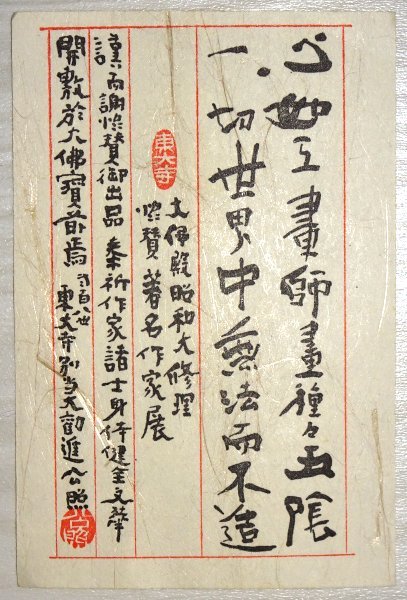 心如工畫師畫種々五陰
一切世界中無法而不造
東大寺
大佛殿昭和大修理
協賛著名作家展
謹而謝協賛御出品奉祈作家諸士身体健全文筆
開敷於大佛寶前焉 弐百八世
東大寺別当大勧進公照
公照